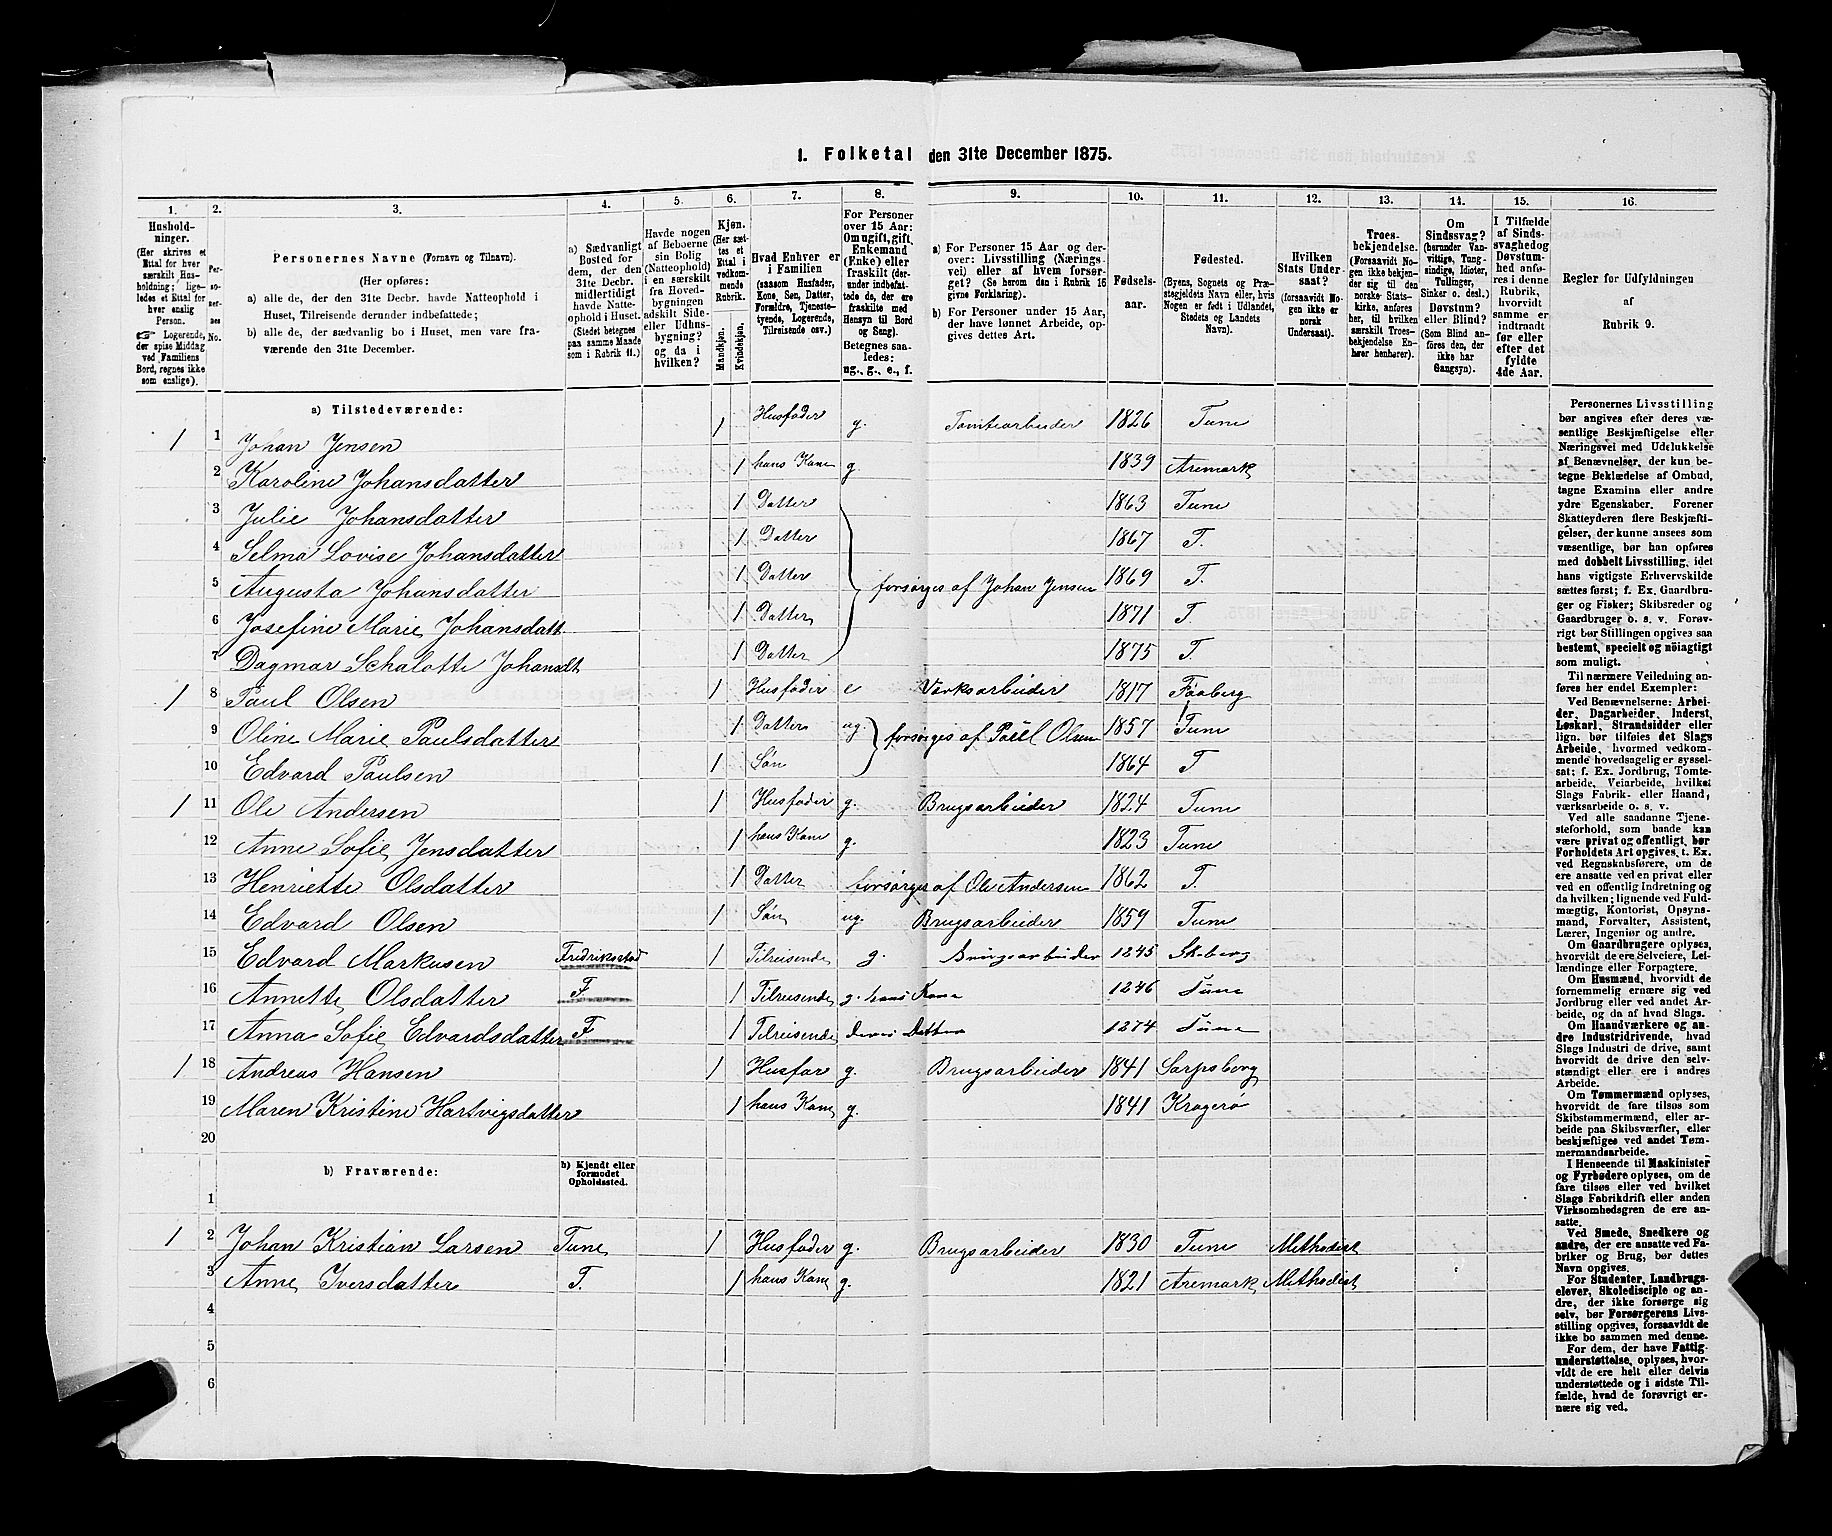 1. Folketal den 31te December 1875.
1. 2. 3. 4. 5. 6. 7. 8. 9. 10. 11. 12. 13. 14. 15. 16.
Husholdninger.
(Her skrives et
Ettal for hver
særskilt Husholdning;
ligeledes et Ettal for
hver enslig
Person.
☞ Logerende,
der spise Middag
ved Familiens
Bord, regnes ikke
som enslige).
Personernes No.
Personernes Navne (Fornavn og Tilnavn).
(Her opføres:
a) alle de, der den 31te Decbr. havde Natteophold i
Huset, Tilreisende derunder indbefattede;
b) alle de, der sædvanlig bo i Huset, men vare fraværende
den 31te December.
a) Sædvanligt
Bosted for
dem, der den
31te Decbr.
midlertidigt
havde Natteophold
i Huset.
(Stedet betegnes
paa samme Maade
som i Rubrik 11.)
Havde nogen
af Beboerne
sin Bolig
(Natteophold)
i en særskilt
fra Hovedbygningen
adskilt Side-
eller Udhusbygning?
og da i
hvilken?
Kjøn.
(Her sættes
et
Ettal i
vedkommende
Rubrik.
Mandkjøn.
Kvindekjøn.
Hvad Enhver er
i Familien
(saasom Husfader,
Kone, Søn, Datter,
Forældre, Tjenestetyende,
Logerende,
Tilreisende osv.)
For Personer
over 15 Aar:
Om ugift, gift,
Enkemand
(Enke) eller
fraskilt (derunder
indbefattede
de, der ere
fraskilte med
Hensyn til Bord
og Seng).
Betegnes saaledes:
ug., g., e., f.
a) For Personer 15 Aar og derover:
Livsstilling (Næringsvei)
eller af hvem forsørget?
(Se herom den i Rubrik 16
givne Forklaring).
b) For Personer under 15 Aar,
der have lønnet Arbeide, opgives
dettes Art.
Fødselsaar.
Fødested.
(Byens, Sognets og Præstegjeldets
Navn eller, hvis
Nogen er født i Udlandet,
Stedets og Landets
Navn).
Hvilken
Stats Undersaat?
(forsaavidt Nogen
ikke er
norsk
Undersaat).
Troesbekjendelse.
(Forsaavidt Nogen
ikke bekjender
sig til den
norske Statskirke,
anføres
her, til hvilken
særskilt Troesbekjendelse
Enhver
henhører).
Om
Sindssvag?
(herunder Vanvittige,
Tungsindige,
Idioter,
Tullinger,
Sinker o. desl.)
Døvstum?
eller Blind?
(Som Blind anføres
den, der
ikke har
Gangsyn).
I Tilfælde
af Sindssvaghed
og
Døvstumhed
anføres
i denne
Rubrik,
hvorvidt
samme er
indtraadt
før eller
efter det
fyldte
4de Aar.
Regler for Udfyldningen
af
Rubrik 9.
a) Tilstedeværende:
1 1 Johan Jensen 1 Husfader g. Tomtearbeider 1826 Tune
2 Karoline Johansdatter 1 hans Kone g 1839 Aremark
3 Julie Johansdatter 1 Datter 1863 Tune
4 Selma Lovise Johansdatter 1 Datter 1867 T.
5 Augusta Johansdatter 1 Datter forsørges af Johan Jensen 1869 T.
6 Josefine Marie Johansdatt. 1 Datter 1871 T.
7 Dagmar Schalotte Johansdt 1 Datter 1875 T
1 8 Paul Olsen 1 Husfader e Værksarbeider 1817 Faaberg
9 Oline Marie Paulsdatter 1 Datter ug. forsørges af Paul Olsen 1857 Tune
10 Edvard Paulsen 1 Søn 1864 T
1 11 Ole Andersen 1 Husfader g. Brugsarbeider 1824 Tune
12 Anne Sofie Jensdatter 1 hans Kone g. 1823 Tune
13 Henriette Olsdatter 1 Datter forsørges af Ole Andersen 1862 T.
14 Edvard Olsen 1 Søn ug. Brugsarbeider 1859 Tune
15 Edvard Markusen Fredriksstad 1 Tilreisende g. Brugsarbeider 1845 Skeberg
16 Annette Olsdatter F 1 Tilreisende g. hans Kone 1846 Tune
17 Anna Sofie Edvardsdatter F 1 Tilreisende deres Datter 1874 Tune
1 18 Andreas Hansen 1 Husfar g. Brugsarbeider 1841 Sarpsborg
19 Maren Kristine Hartvigsdatter 1 hans Kone g. 1841 Kragerø
20
b) Fraværende:
b) Kjendt eller
formodet
Opholdssted.
1
1 2 Johan Kristian Larsen Tune 1 Husfader g. Brugsarbeider 1830 Tune Methodist
3 Anne Iversdatter T. 1 hans Kone g. 1821 Aremark Methodist
4
5
6
Personernes Livsstilling
bør angives efter deres væsentlige
Beskjæftigelse eller
Næringsvei med Udelukkelse
af Benævnelser, der kun betegne
Beklædelse af Ombud,
tagne Examina eller andre
ydre Egenskaber. Forener
Skatteyderen flere Beskjæftigelser,
der kunne ansees som
væsentlige, bør han opføres
med dobbelt Livsstilling, idet
hans vigtigste Erhvervskilde
sættes først; f. Ex. Gaardbruger
og Fisker; Skibsreder og
Gaardbruger o. s. v. Forøvrigt
bør Stillingen opgives saa
bestemt, specielt og nöiagtigt
som muligt.
Til nærmere Veiledning anføres
her endel Exempler:
Ved Benævnelserne: Arbeider,
Dagarbeider, Inderst,
Løskarl, Strandsidder eller
lign. bør tilføies det Slags
Arbeide, hvormed vedkommende
hovedsagelig er sysselsat;
f. Ex. Jordbrug, Tomtearbeide,
Veiarbeide, hvilket
Slags Fabrik- eller Haandværksarbeide
o. s. v.
Ved alle saadanne Tjenesteforhold,
som baade kan
være privat og offentligt, bør
Forholdets Art opgives, t. Ex.
ved Regnskabsførere, om de
ere ansatte ved en privat eller
ved en offentlig Indretning og
da hvilken; lignende ved Fuldmægtig,
Kontorist, Opsynsmand,
Forvalter, Assistent,
Lærer, Ingeniør og andre.
Om Gaardbrugere oplyses,
hvorvidt de ere Selveiere, Leilændinge
eller Forpagtere.
Om Husmænd, hvorvidt de
fornemmelig ernære sig ved
Jordbrug eller ved andet Arbeide,
og da af hvad Slags.
Om Haandværkere og andre
Industridrivende, hvad
Slags Industri de drive, samt
hvorvidt de drive den selvstændigt
eller ere i andres
Arbeide.
Om Tømmermænd oplyses,
hvorvidt de fare tilsøs som
Skibstømmermænd, eller arbeide
paa Skibsværfter, eller
beskjæftiges ved andet Tømmermandsarbeide.
I Henseende til Maskinister
og Fyrbødere oplyses, om de
fare tilsøs eller ved hvilket
Slags Fabrikdrift eller anden
Virksomhedsgren de ere ansatte.
Ved Smede, Snedkere og
andre, der ere ansatte ved Fabriker
og Brug, bør dettes
Navn opgives.
For Studenter, Landbrugselever,
Skoledisciple og andre,
der ikke forsørge sig
selv, bør Forsørgerens Livsstilling
opgives, forsaavidt de
ikke bo sammen med denne.
For dem, der have Fattigunderstøttelse,
oplyses, hvorvidt
de ere helt eller delvis
understøttede og i sidste Tilfælde,
hvad de forøvrigt ernære
sig ved.